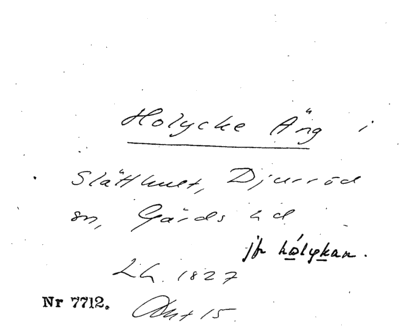 Holycke Äng i
Slätthult, Djurröd
sn, Gärds hd
jfr hólykan.
Lh. 1827
Nr 7712. Akt 15